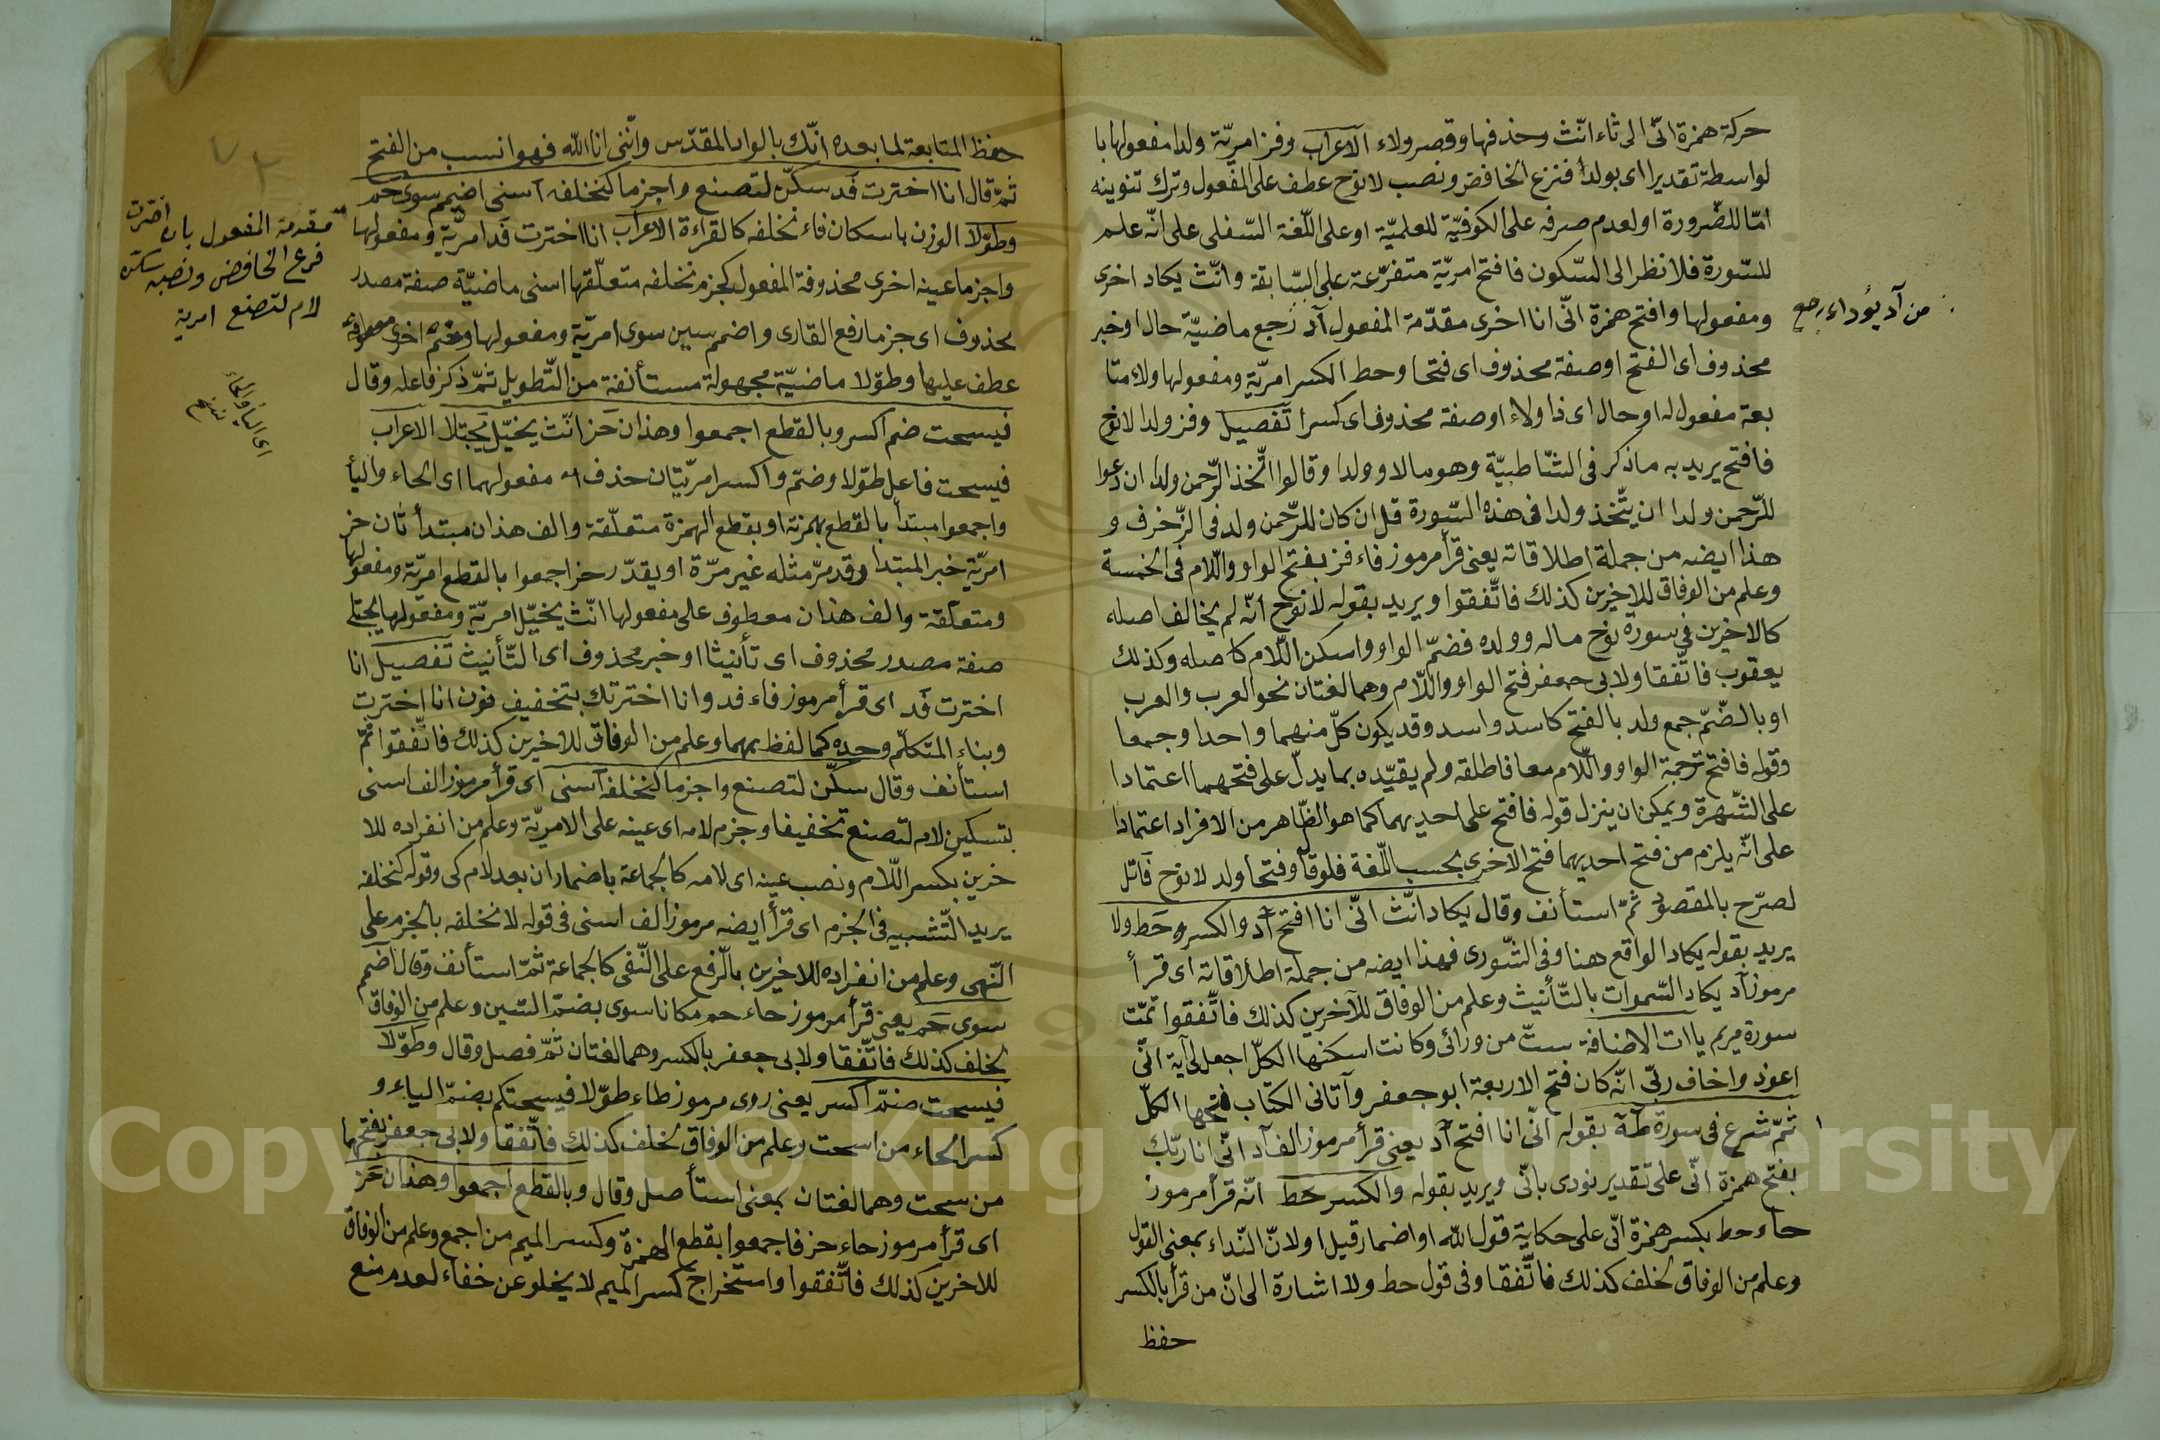 حركة همزة انّى الى ثاء انّث وحذفها وقصر ولاء الاعراب وفز امريّة ولدا مفعولها با
لواسطة تقديرا اى بولدا فنزع الخافض ونصب لا نوح عطف على المفعول وترك تنوينه
امّا للضّرورة او لعدم صرفه على الكوفيّة للعلميّة او على اللّغة السّفلى على انّه علم
للسّورة فلا نظر الى السّكون فافتح امريّة متفرّعة على السّابقة وانّث يكاد اخرى
ومفعولها وافتح همزة انّى انا اخرى مقدّمة المفعول آد رجع ماضيّة حال او خبر
من آد يؤد اى رجع
محذوف اى الفتح او صفة محذوف اى فتحا وحط الكسر امريّة ومفعولها ولاء متا
بعة مفعول له او حال اى ذا ولاء او صفة محذوف اى كسرا تفصيل وفز ولدا لا نوح
فافتح يريد به ما ذكر فى الشّاطبيّة وهو مالا وولدا وقالوا اتّخذ الرّحمن ولدا ان دعوا
للرّحمن ولدا ان يتّخذ ولدا فى هذه السّورة قل ان كان للرّحمن ولد فى الزّخرف و
هذا ايضه من جملة اطلاقاته يعنى قرأ مرموز فاء فز بفتح الواو واللّام فى الخمسة
وعلم من الوفاق للاخيرين كذلك فاتّفقوا ويريد بقوله لا نوح انّه لم يخالف اصله
كالاخرين فى سورة نوح ماله وولده فضمّ الواو واسكن اللّام كاصله وكذلك
يعقوب فاتّفقا ولابى جعفر فتح الواو واللّام وهما لغتان نحو العرب والعرب
او بالضّمّ جمع ولد بالفتح كاسد واسد وقد يكون كلّ منهما واحدا وجمعا
وقوله فافتح ترجمة الواو واللّام معا فاطلقه ولم يقيّده بما يدلّ على فتحهما اعتمادا
على الشّهرة ويمكن ان ينزل قوله فافتح على احديهما كما هو الظّاهر من الافراد اعتمادا
على انّه يلزم من فتح احديهما فتح الاخرى بحسب اللّغة فلو قال وفتحا ولد لا نوح قائل
لصرّح بالمقصود ثمّ استأنف وقال يكاد انّث انّى انا افتح آد والكسر حط ولا
يريد بقوله يكاد الواقع هنا وفى الشّورى فهذا ايضه من جملة اطلاقاته اى قرأ
مرموز آد يكاد السّموات بالتّأنيث وعلم من الوفاق للآخرين كذلك فاتّفقوا تمّت
سورة مريم ياات الاضافة ستّ من ورائى وكانت اسكنها الكلّ اجعل لى آية انّى
اعوذ واخاف ربّى انّه كان فتح الاربعة ابو جعفر وآتانى الكتاب فتحها الكلّ
ثمّ شرع فى سورة طه بقوله انّى انا افتح آد يعنى قرأ مرموز الف آد انّى انا ربّك
بفتح همزة انّى على تقدير نودى بانّى ويريد بقوله والكسر حط انّه قرأ مرموز
حاء حط بكسر همزة انّى على حكاية قول الله او اضمار قيل او لانّ النّداء بمعنى القول
وعلم من الوفاق لخلف كذلك فاتّفقا وفى قول حط ولا اشارة الى انّ من قرأ بالكسر
حفظ
حفظ المتابعة لما بعده انّك بالواد المقدّس وانّنى انا الله فهو انسب من الفتح
ثمّ قال انا اخترت فد سكّن لتصنع واجزما كنخلفه اسنى اضمم سوى حم
وطوّلا الوزن باسكان فاء نخلفه كالقراءة الاعراب انا اخترت فد امريّة ومفعولها
مقدمة المفعول بان اخترت
فرع الخافض ونصبه سكن
لام لتصنع امرية
واجزما عينه اخرى محذوفة المفعول كجزم نخلفه متعلّقها اسنى ماضيّة صفة مصدر
محذوف اى جزما رفع القارى واضمم سين سوى امريّة ومفعولها وحم اخرى معطوفة
عطف عليها وطوّلا ماضيّة مجهولة مستأنفة من التّطويل ثمّ ذكر فاعله وقال
فيسحت ضم اكسر وبالقطع اجمعوا وهذان حز انّث يخيّل يجتلا الاعراب
فيسحت فاعل طوّلا وضمّ واكسر امريّتان حذف مفعولهما اى الحاء واليأ
اى الياء والحاء
نسخ
واجمعوا مبتدأ بالقطع بهمزته او بقطع الهمزة متعلّقة والف هذان مبتدأ ثان حز
امريّة خبر المبتدا وقد مرّ مثله غير مرّة او يقدّر حز اجمعوا بالقطع امريّة ومفعولها
ومتعلّقة والف هذان معطوف على مفعولها انّث يخيّل امريّة ومفعولها يجتلى
صفة مصدر محذوف اى تأنيثا او خبر محذوف اى التّأنيث تفصيل انا
اخترت فد اى قرأ مرموز فاء فد وانا اخترتك بتخفيف نون انا اخترت
وبناء المتكلّم وحده كما لفظ بهما وعلم من الوفاق للاخيرين كذلك فاتّفقوا ثمّ
استأنف وقال سكّن لتصنع واجزما كنخلفه اسنى اى قرأ مرموز الف اسنى
بتسكين لام لتصنع تخفيفا وجزم لامه اى عينه على الامريّة وعلم من انفراده للا
خرين بكسر اللّام ونصب عينه اى لامه كالجماعة باضمار ان بعد لام كى وقوله كنخلفه
يريد التّشبيه فى الجزم اى قرأ ايضه مرموز الف اسنى فى قوله لا نخلفه بالجزم على
النّهى وعلم من انفراده للاخرين بالرّفع على النّفى كالجماعة ثمّ استأنف وقال اضمم
سوى حم يعنى قرأ مرموز حاء حم مكانا سوى بضمّ السّين وعلم من الوفاق
لخلف كذلك فاتّفقا ولابى جعفر بالكسر وهما لغتان ثمّ فصل وقال وطوّلا
فيسحت ضمّ اكسر يعنى روى مرموز طاء طوّلا فيسحتكم بضمّ الياء و
كسر الحاء من اسحت وعلم من الوفاق لخلف كذلك فاتّفقا ولابى جعفر بفتحهما
من سحت وهما لغتان بمعنى استأصل وقال وبالقطع اجمعوا وهذان حز
اى قرأ مرموز حاء حز فاجمعوا بقطع الهمزة وكسر الميم من اجمع وعلم من الوفاق
للاخرين كذلك فاتّفقوا واستخراج كسر الميم لا يخلو عن خفاء لعدم منع
Copyright © King Saud University